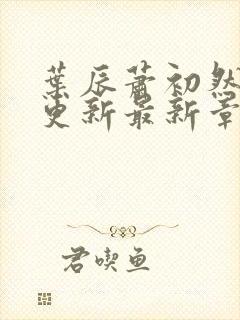 葉辰蕭初然
更新最新章
君喫魚